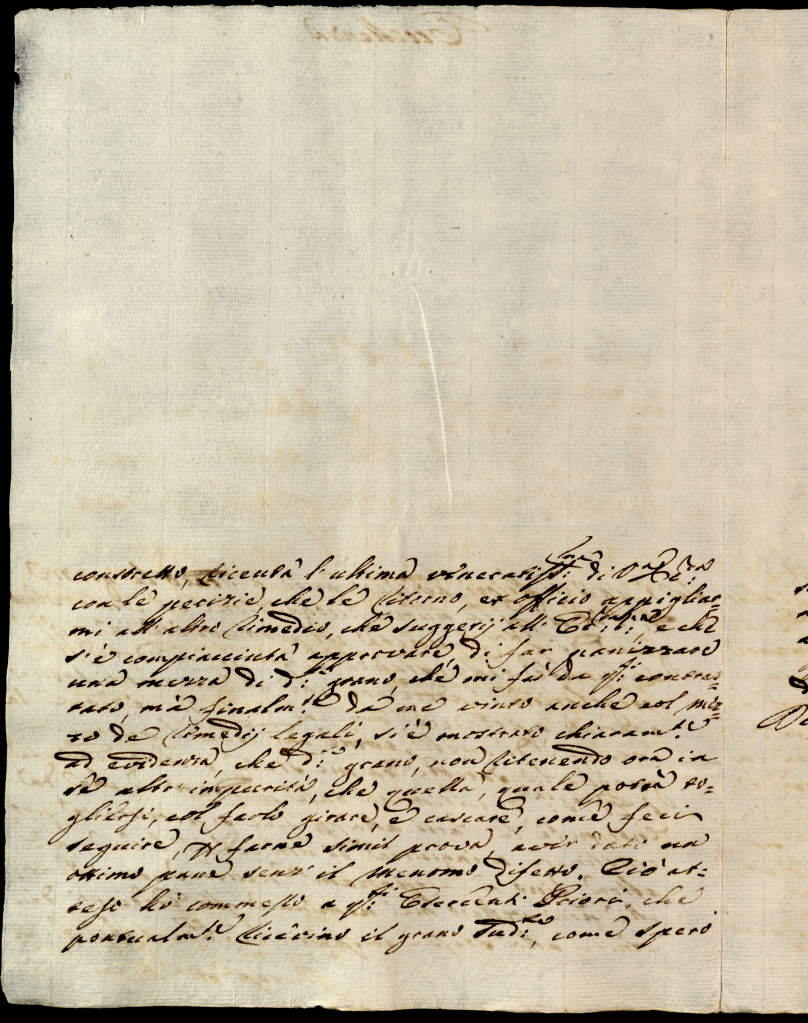 constretto, ricevuta l'ultima veneratiss:ma di V. Ecc:za
con le perizie, che le ritorno, ex officio appigliar=
mi all'altro rimedio, che suggerij all' e che
s'è compiacciuta approvare di far panizzare
una mezza di d:o grano, che mi fù da q:ti contras=
tato, mà finalm:te da me vinto anche col mez=
zo de rimedij legali, si è mostrato chiaram:te
ad evidenza, che d:o grano, non ritenendo ora in
sè altr'impurità, che quella, quale potrà to=
gliersi, col farlo girare, e cascare, come feci
seguire, p farne simil prova, aver dato un
ottimo pane senz'il menomo difetto. Ciò at=
teso hò commesso a q:ti Priori, che
pontualm:te ricevino il grano sud:to, come spero